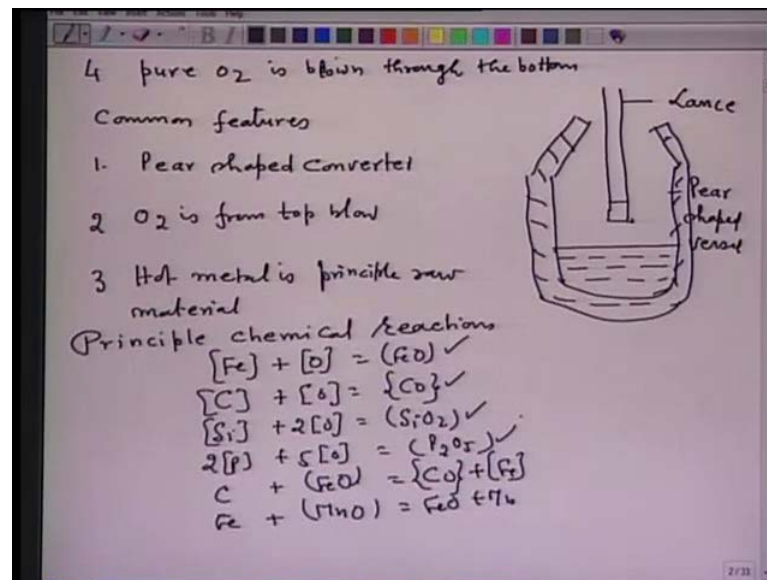 4 pure O2 is blown through the bottom
Common features
1. Pear shaped converter
2 O2 is from top blow
3 Hot metal is principle raw
material
Principle chemical reactions
[Fe] + [O] = (FeO) ✓
[C] + [O] = {CO} ✓
[Si] + 2[O] = (SiO2) ✓
2[P] + 5[O] = (P2O5) ✓
C + (FeO) = {CO} + [Fe]
Fe + (MnO) = FeO + Mn
Lance
Pear
shaped
vessel
2/33